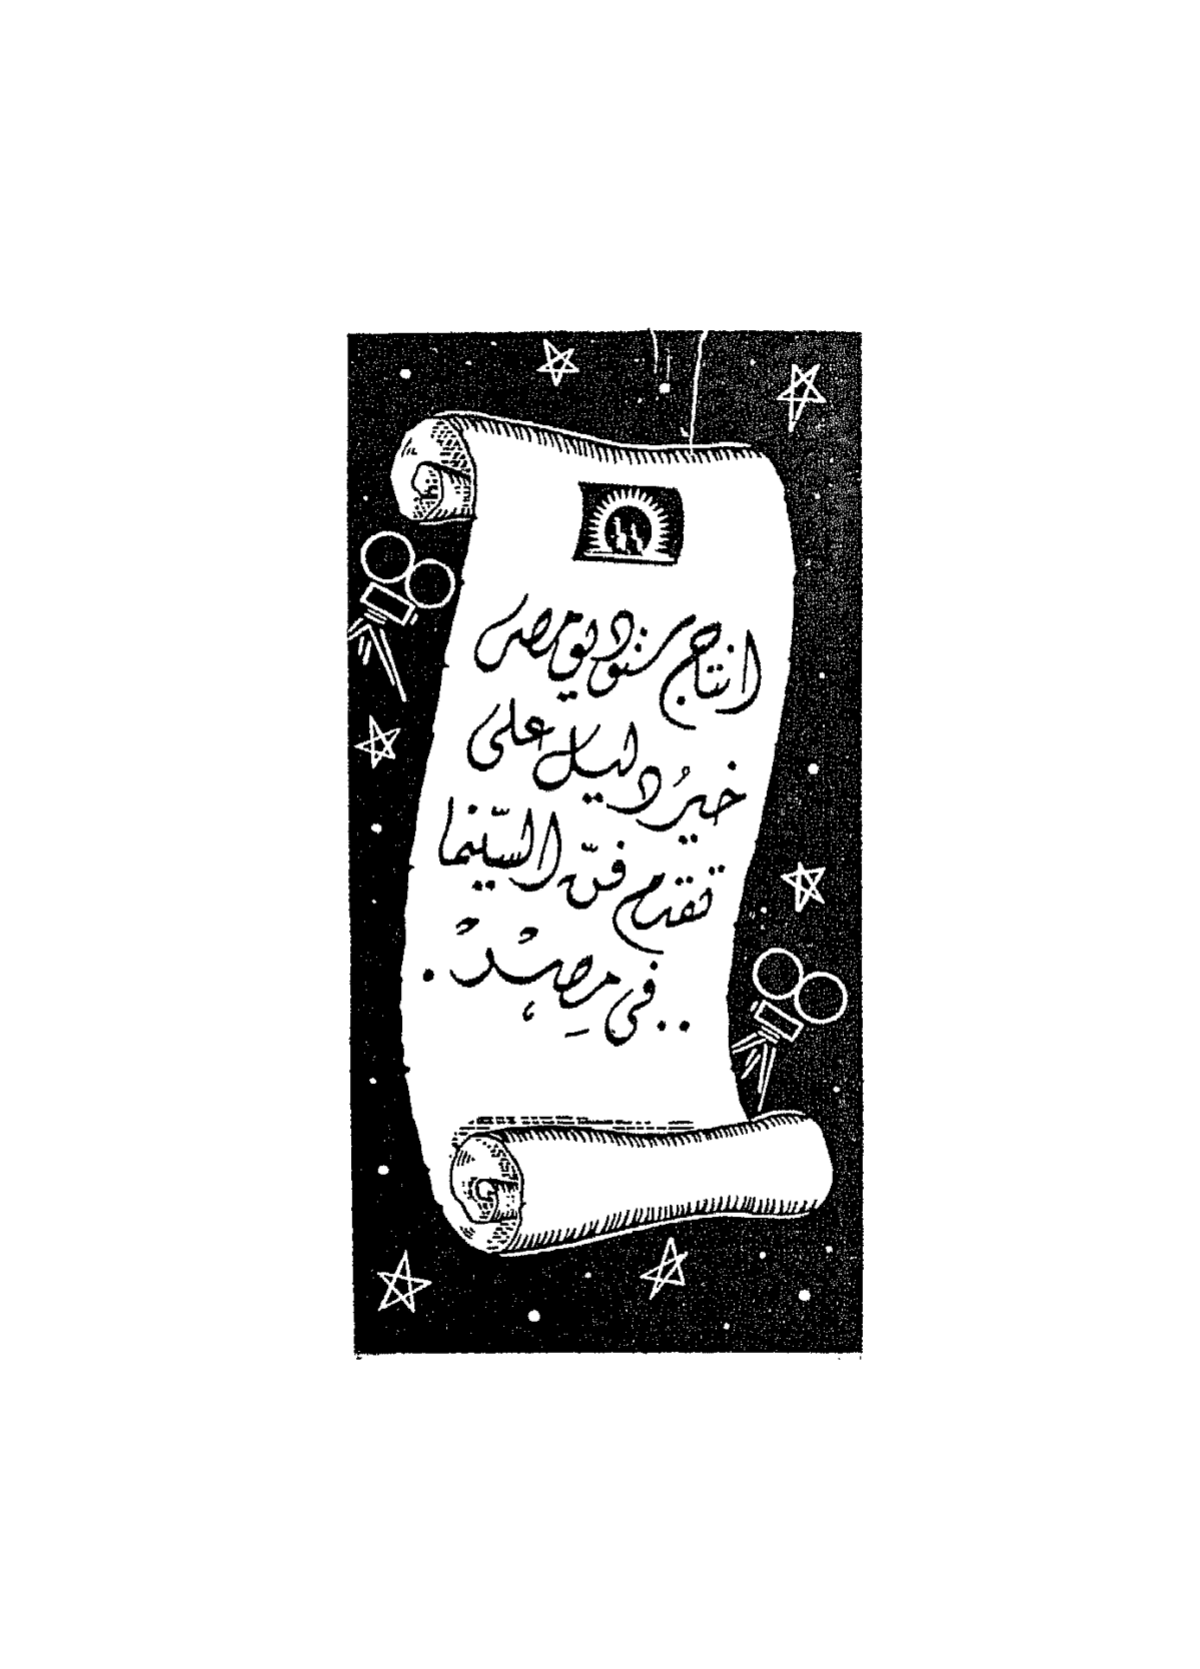 انتاج ستوديو مصر
خيرُ دليل على
تقدم فنّ السّينما
..فى مِصر.